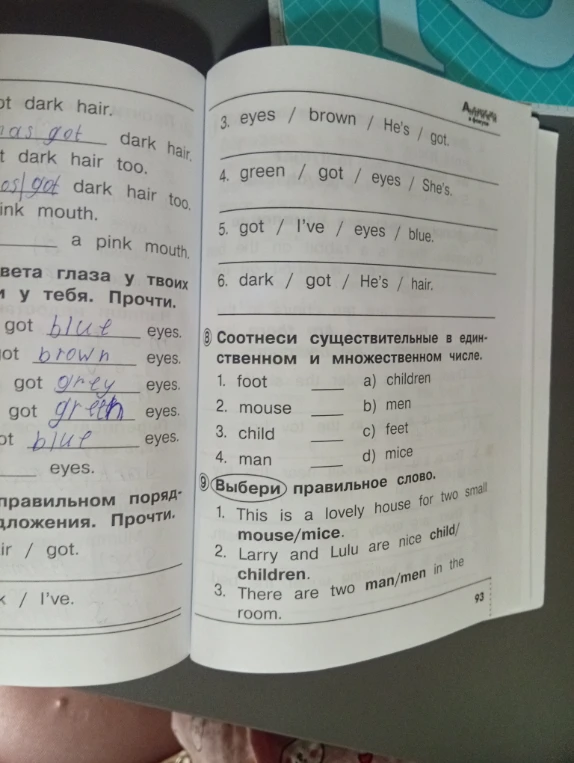 ot dark hair.
has got dark hair.
t dark hair too.
os got dark hair too.
ink mouth.
a pink mouth.
вета глаза у твоих
и у тебя. Прочти.
got blue eyes.
ot brown eyes.
got grey eyes.
got green eyes.
ot blue eyes.
eyes.
правильном поряд-
дложения. Прочти.
ir / got.
k / I've.
3. eyes / brown / He's / got.
4. green / got / eyes / She's.
5. got / I've / eyes / blue.
6. dark / got / He's / hair.
8 Соотнеси существительные в един-
ственном и множественном числе.
1. foot ____ a) children
2. mouse ____ b) men
3. child ____ c) feet
4. man ____ d) mice
9 Выбери правильное слово.
1. This is a lovely house for two small
mouse/mice.
2. Larry and Lulu are nice child/
children.
3. There are two man/men in the
room.
93